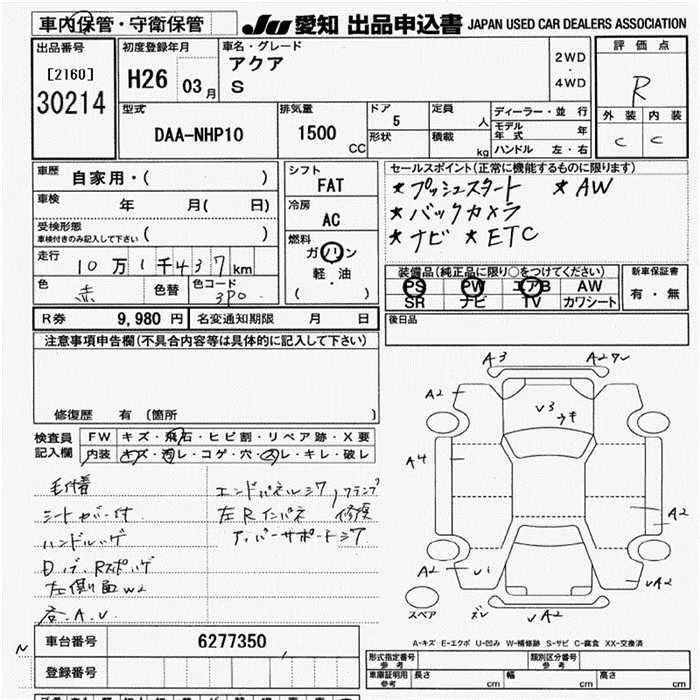 車内保管・守衛保管
JU 愛知 出品申込書 JAPAN USED CAR DEALERS ASSOCIATION
出品番号
[2160]
30214
初度登録年月
H26 03月
車名・グレード
アクア
S
2WD
・
4WD
評価点
R
外装 内装
C C
型式
DAA-NHP10
排気量
1500
CC
ドア
5
形状
定員
人
積載
kg
ディーラー・並行
モデル年式 年
ハンドル 左・右
車歴
自家用・( )
車検
年 月( 日)
受検形態
車検付きのみ記入して下さい ( )
走行
10万1千437km
色
赤
色替
色コード
3P0
シフト
FAT
冷房
AC
燃料
ガソリン
軽・油
( )
セールスポイント(正常に機能するものに限ります)
★プッシュスタート ★AW
★バックカメラ
★ナビ ★ETC
装備品(純正品に限り○をつけてください)
PS PW エアB AW
SR ナビ TV カワシート
新車保証書
有・無
R券 9,980円 名変通知期限 月 日
後日品
注意事項申告欄(不具合内容等は具体的に記入して下さい)
修復歴 有 (箇所 )
検査員
記入欄
FW キズ・飛石・ヒビ割・リペア跡・X要
内装 キズ・汚レ・コゲ・穴・スレ・キレ・破レ
毛付着
シートカバー付
ハンドルハゲ
左側面W2
各.A.U
エンドパネルシワ,クランプ
左Rインパネ 修換
アッパーサポートシワ
A3
A2ワレ
A2
V3
ウキ
A4
A2
A2
U1
VA2
ズレ
VA2
スペア
A-キズ E-エクボ U-凹み W-補修跡 S-サビ C-腐食 XX-交換済
N
車台番号
6277350
登録番号
形式指定番号
参考
類別区分番号
参考
車庫証明用
参考
長さ cm
幅 cm
高さ cm